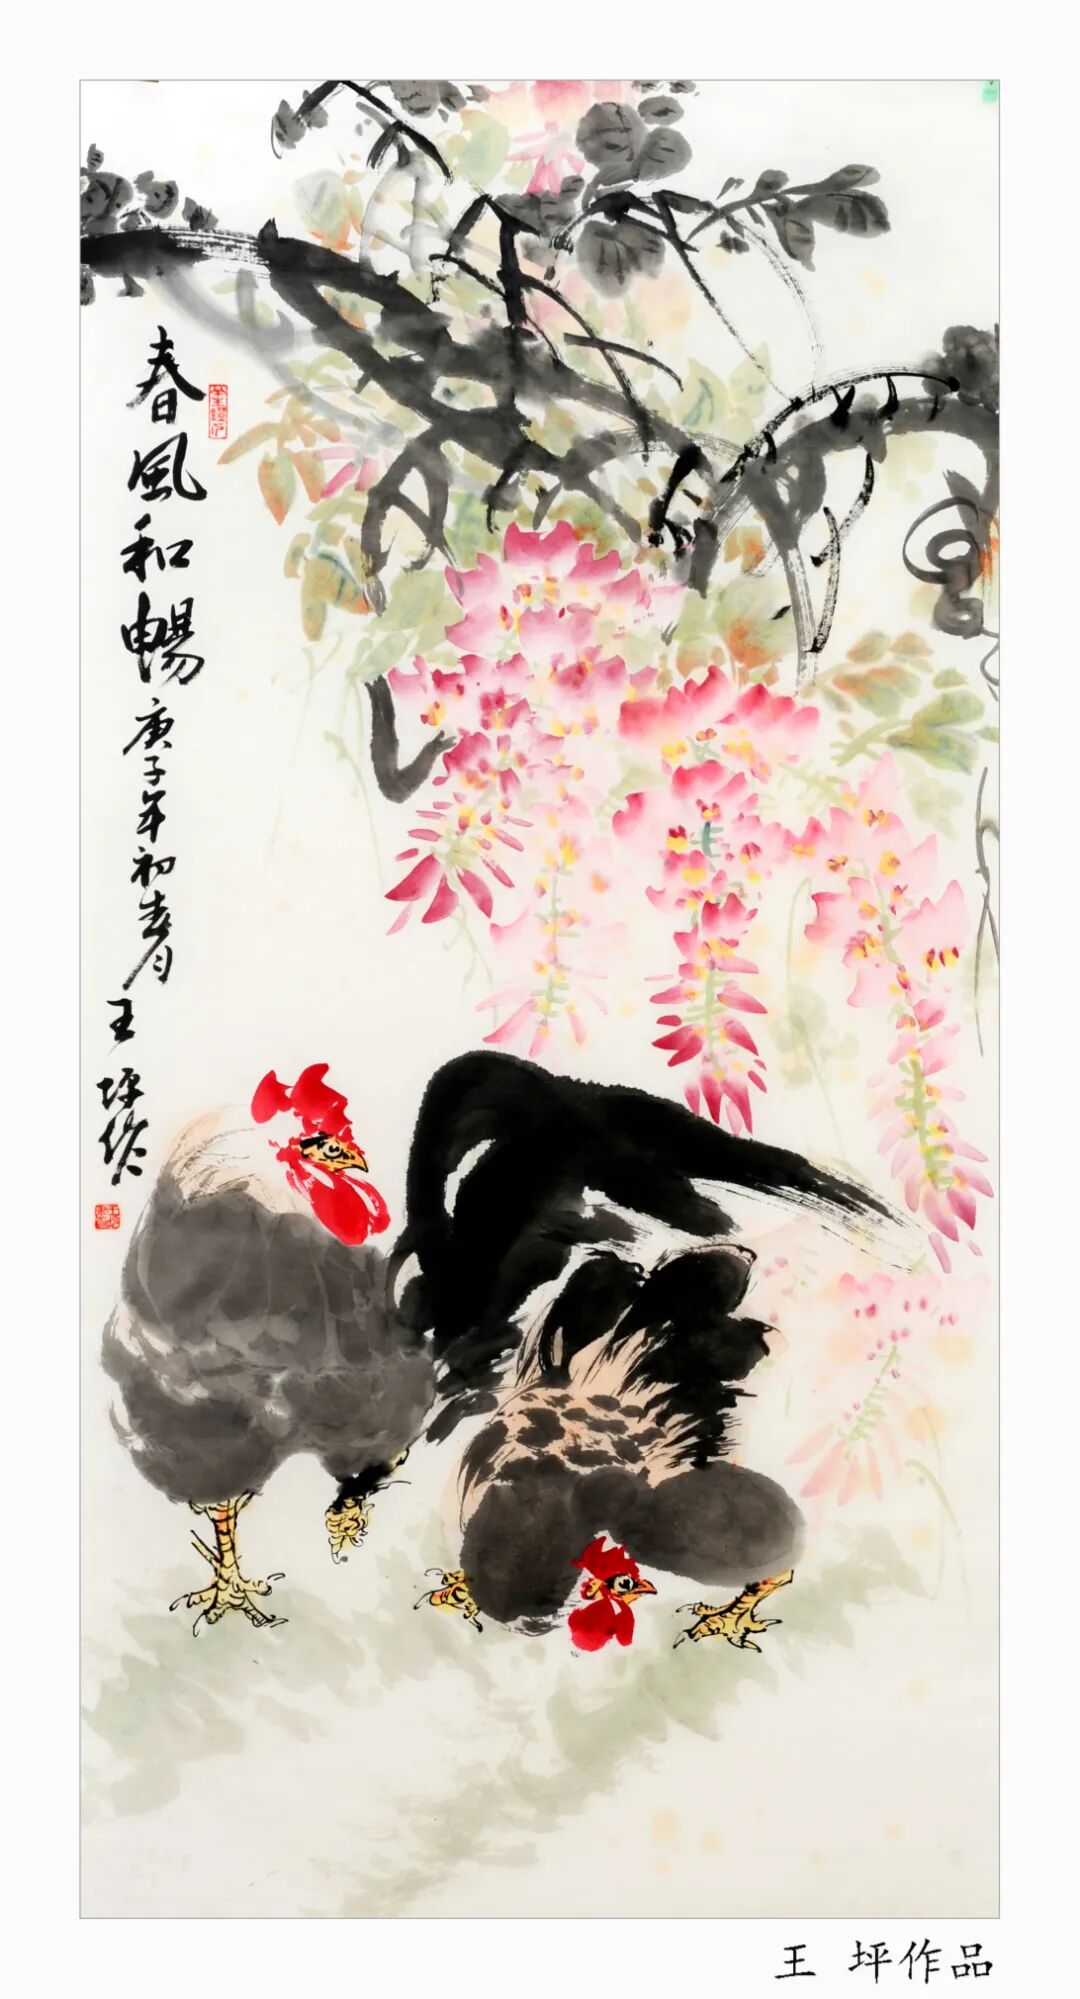 春風和暢
庚子年初春月
王坪作
王 坪作品